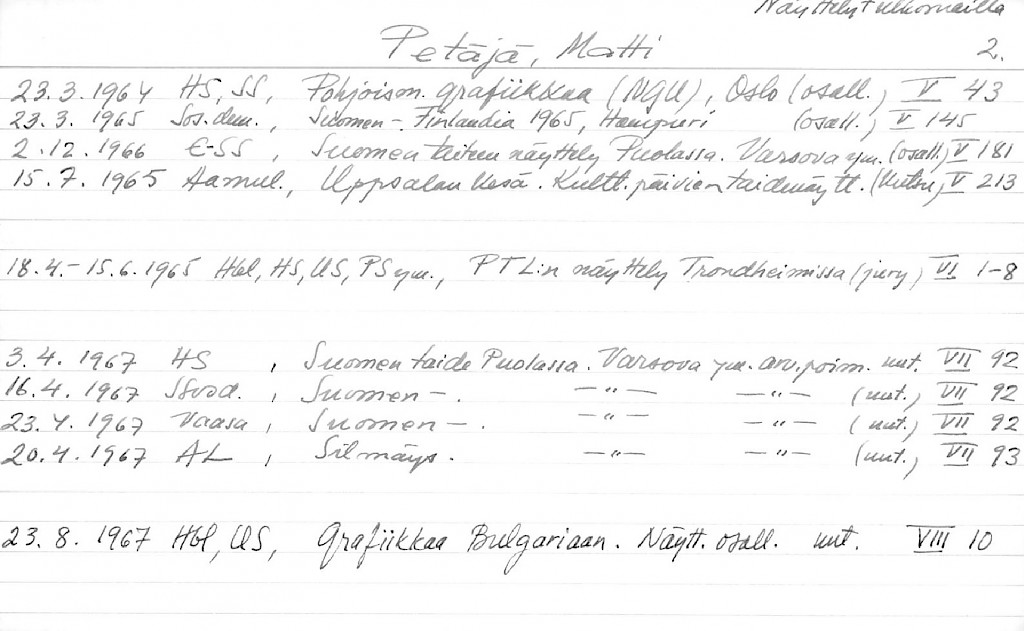 Näyttelyt ulkomailla
Petäjä, Matti 2.
23.3.1964 HS, SS, Pohjoism. grafiikkaa (NGU), Oslo (osall.) V 43
23.3.1965 Sos.dem., Suomen-. Finlandia 1965, Hampuri (osall.) V 145
2.12.1966 E-SS, Suomen taiteen näyttely Puolassa. Varsova ym. (osall.) V 181
15.7.1965 Aamul., Uppsalan Kesä. Kultt.päivien taidenäytt. (kutsu) V 213
18.4.-15.6.1965 Hbl, HS, US, PS ym., PTL:n näyttely Trondheimissa (jury) VI 1-8
3.4.1967 HS, Suomen taide Puolassa. Varsova ym. arv.poim. uut. VII 92
16.4.1967 Stvod., Suomen-. -"- -"- (uut.) VII 92
23.4.1967 Vaasa, Suomen-. -"- -"- (uut.) VII 92
20.4.1967 AL, Silmäys. -"- -"- (uut.) VII 93
23.8.1967 Hbl, US, Grafiikkaa Bulgariaan. Näytt. osall. uut. VIII 10